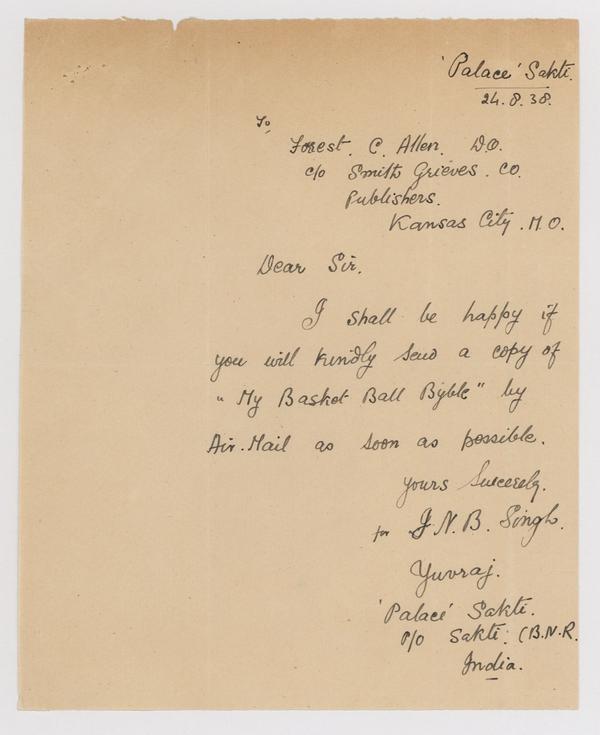 'Palace' Sakti.
24.8.38.
To,
Forest. C. Allen. D.O.
c/o Smith Grieves. Co.
Publishers.
Kansas City. M.O.
Dear Sir.
I shall be happy if
you will kindly send a copy of
"My Basket Ball Byble" by
Air.Mail as soon as possible.
Yours Sincerely.
for J.N.B. Singh.
Yuvraj.
'Palace' Sakti.
P/O Sakti: (B.N.R.
India.